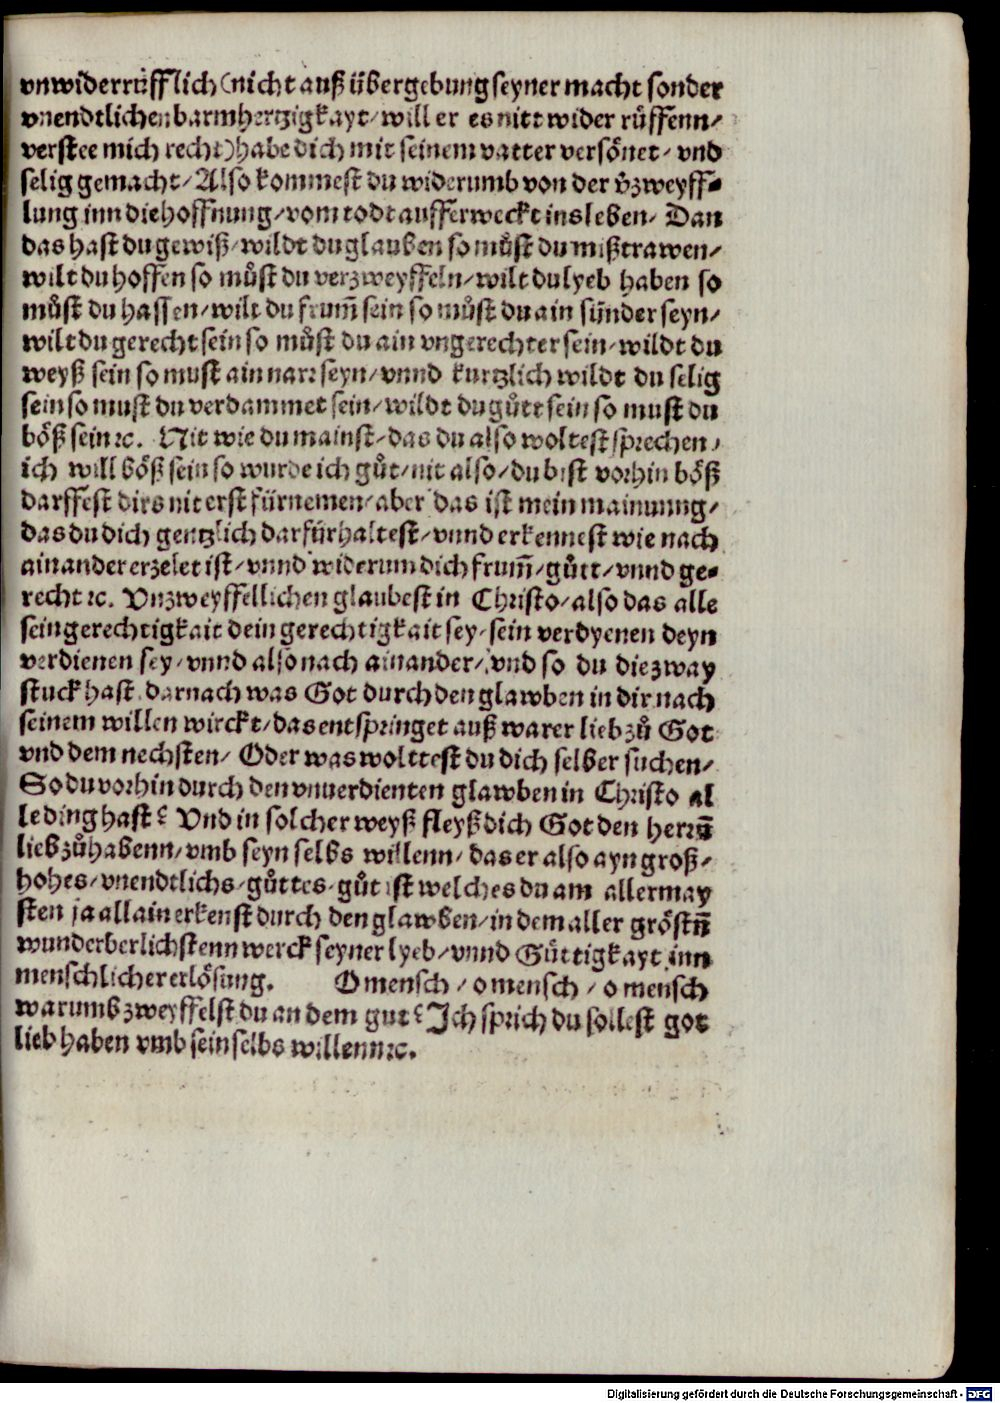 vnwiderrůfflich (nicht auß übergebung seyner macht sonder
vnendtlichen barmhertzigkayt / will er es nitt wider růffenn /
verstee mich recht) habe dich mit seinem vatter versönet / vnd
selig gemacht / Also kommest du widerumb von der v̈zweyff⸗
lung inn die hoffnung / vom todt aufferweckt ins leben / Dan
das hast du gewiß / wildt du glauben so můst du mißtrawen /
wilt du hoffen so můst du verzweyffeln / wilt du lyeb haben so
můst du hassen / wilt du frum̃ sein so můst du ain sünder seyn /
wilt du gerecht sein so můst du ain vngerechter sein / wildt du
weyß sein so must ain narr seyn / vnnd kurtzlich wildt du selig
sein so must du verdammet sein / wildt du gůtt sein so must du
böß sein ꝛc. Nit wie du mainst / das du also woltest sprechen /
ich will böß sein so wurde ich gůt / nit also / du bist vorhin böß
darffest dirs nit erst fürnemen / aber das ist mein mainunng /
das du dich gentzlich darfür haltest / vnnd erkennest wie nach
ainander erzelet ist / vnnd widerum dich frum̃ / gůtt / vnnd ge⸗
recht ꝛc. Vnzweyffellichen glaubest in Christo / also das alle
sein gerechtigkait dein gerechtigkait sey / sein verdyenen deyn
verdienen sey / vnnd also nach ainander / vnd so du die zway
stuck hast darnach was Got durch den glawben in dir nach
seinem willen wirckt / das entspringet auß warer lieb zů Got
vnd dem nechsten / Oder was wolttest du dich selber suchen /
So du vorhin durch den vnuerdienten glawben in Christo al
le ding hast? Vnd in solcher weyß fleyß dich Got den herrñ
lieb zůhabenn / vmb seyn selbs willenn / das er also ayn groß /
hohes / vnendtlichs / gůttes / gůt ist welches du am allermay
sten ja allain erkenst durch den glawben / in dem aller gröstñ
wunderberlichstenn werck seyner lyeb / vnnd Gůttigkayt inn
menschlicher erlösung. O mensch / o mensch / o mensch
warumb zweyffelst du an dem gut? Ich sprich du sollest got
lieb haben vmb sein selbs willenn ꝛc.
Digitalisierung gefördert durch die Deutsche Forschungsgemeinschaft - DFG